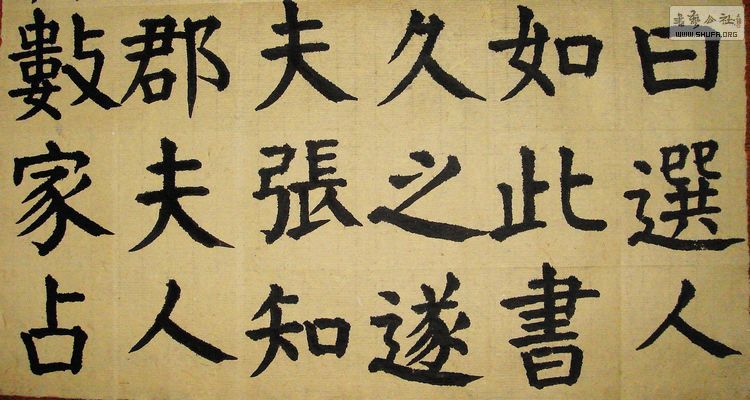 曰選人
如此書
久之遂
夫張知
郡夫人
數家占
WWW.SHUFA.ORG